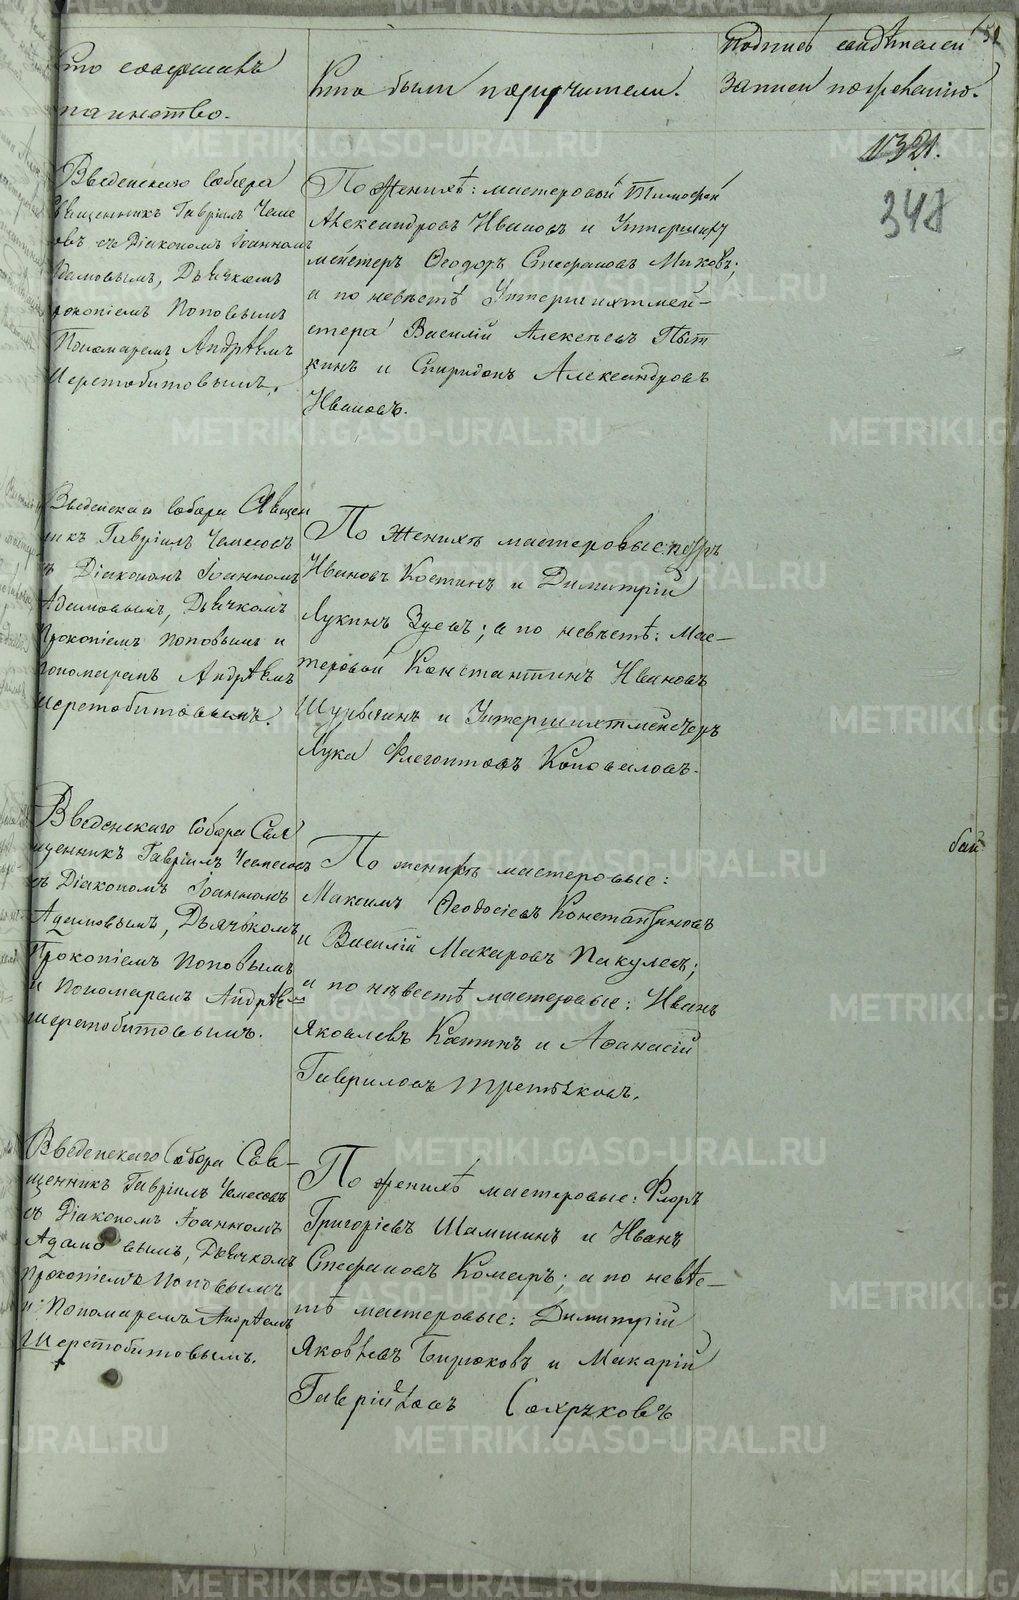 Кто совершалъ
таинство.
Кто были поручители.
Подпись свидѣтелей
записи по желанію.
51
1321.
348
Введенскаго Собора
Священникъ Гавріилъ Чеме
совъ съ Діакономъ Іоанномъ
Адамовымъ, Дьячкомъ
Прокопіемъ Поповымъ
Пономаремъ Андреемъ
Шерстобитовымъ.
По женихѣ: мастеровой Тимофей
Александровъ Ивановъ и Унтершихт
мейстеръ Ѳеодоръ Стефановъ
и по невѣстѣ Унтершихтмей-
стера Василій Алексѣевъ Пят
кинъ и Спиридонъ Александровъ
Ивановъ.
Введенскаго Собора Священ
никъ Гавріилъ Чемесовъ
съ Діакономъ Іоанномъ
Адамовымъ, Дьячкомъ
Прокопіемъ Поповымъ и
Пономаремъ Андреемъ
Шерстобитовымъ.
По женихѣ мастеровые: Петръ
Ивановъ Костинъ и Димитрій
Лукинъ Зуевъ; а по невѣстѣ: Мас-
теровой Константинъ Ивановъ
и Унтершихтмейстеръ
Лука Флегонтовъ Коноваловъ.
Введенскаго Собора Свя
щенникъ Гавріилъ Чемесовъ
съ Діакономъ Іоанномъ
Адамовымъ, Дьячкомъ
Прокопіемъ Поповымъ
и Пономаремъ Андрее
Шерстобитовымъ.
По женихѣ мастеровые:
Максимъ Ѳеодосіевъ Константиновъ
и Василій Макаровъ Пакулевъ;
а по невѣстѣ мастеровые: Иванъ
Яковлевъ Костинъ и Афанасій
Гавриловъ Третьяковъ.
бай
Введенскаго Собора Свя-
щенникъ Гавріилъ Чемесовъ
съ Діакономъ Іоанномъ
Адамовымъ, Дьячкомъ
Прокопіемъ Поповымъ
и Пономаремъ Андреемъ
Шерстобитовымъ.
По женихѣ мастеровые: Флоръ
Григоріевъ Шамшинъ и Иванъ
Стефановъ Комаръ; а по невѣс-
тѣ мастеровые: Димитрій
Яковлевъ Бирюковъ и Макарій
METRIKI.GASO-URAL.RU